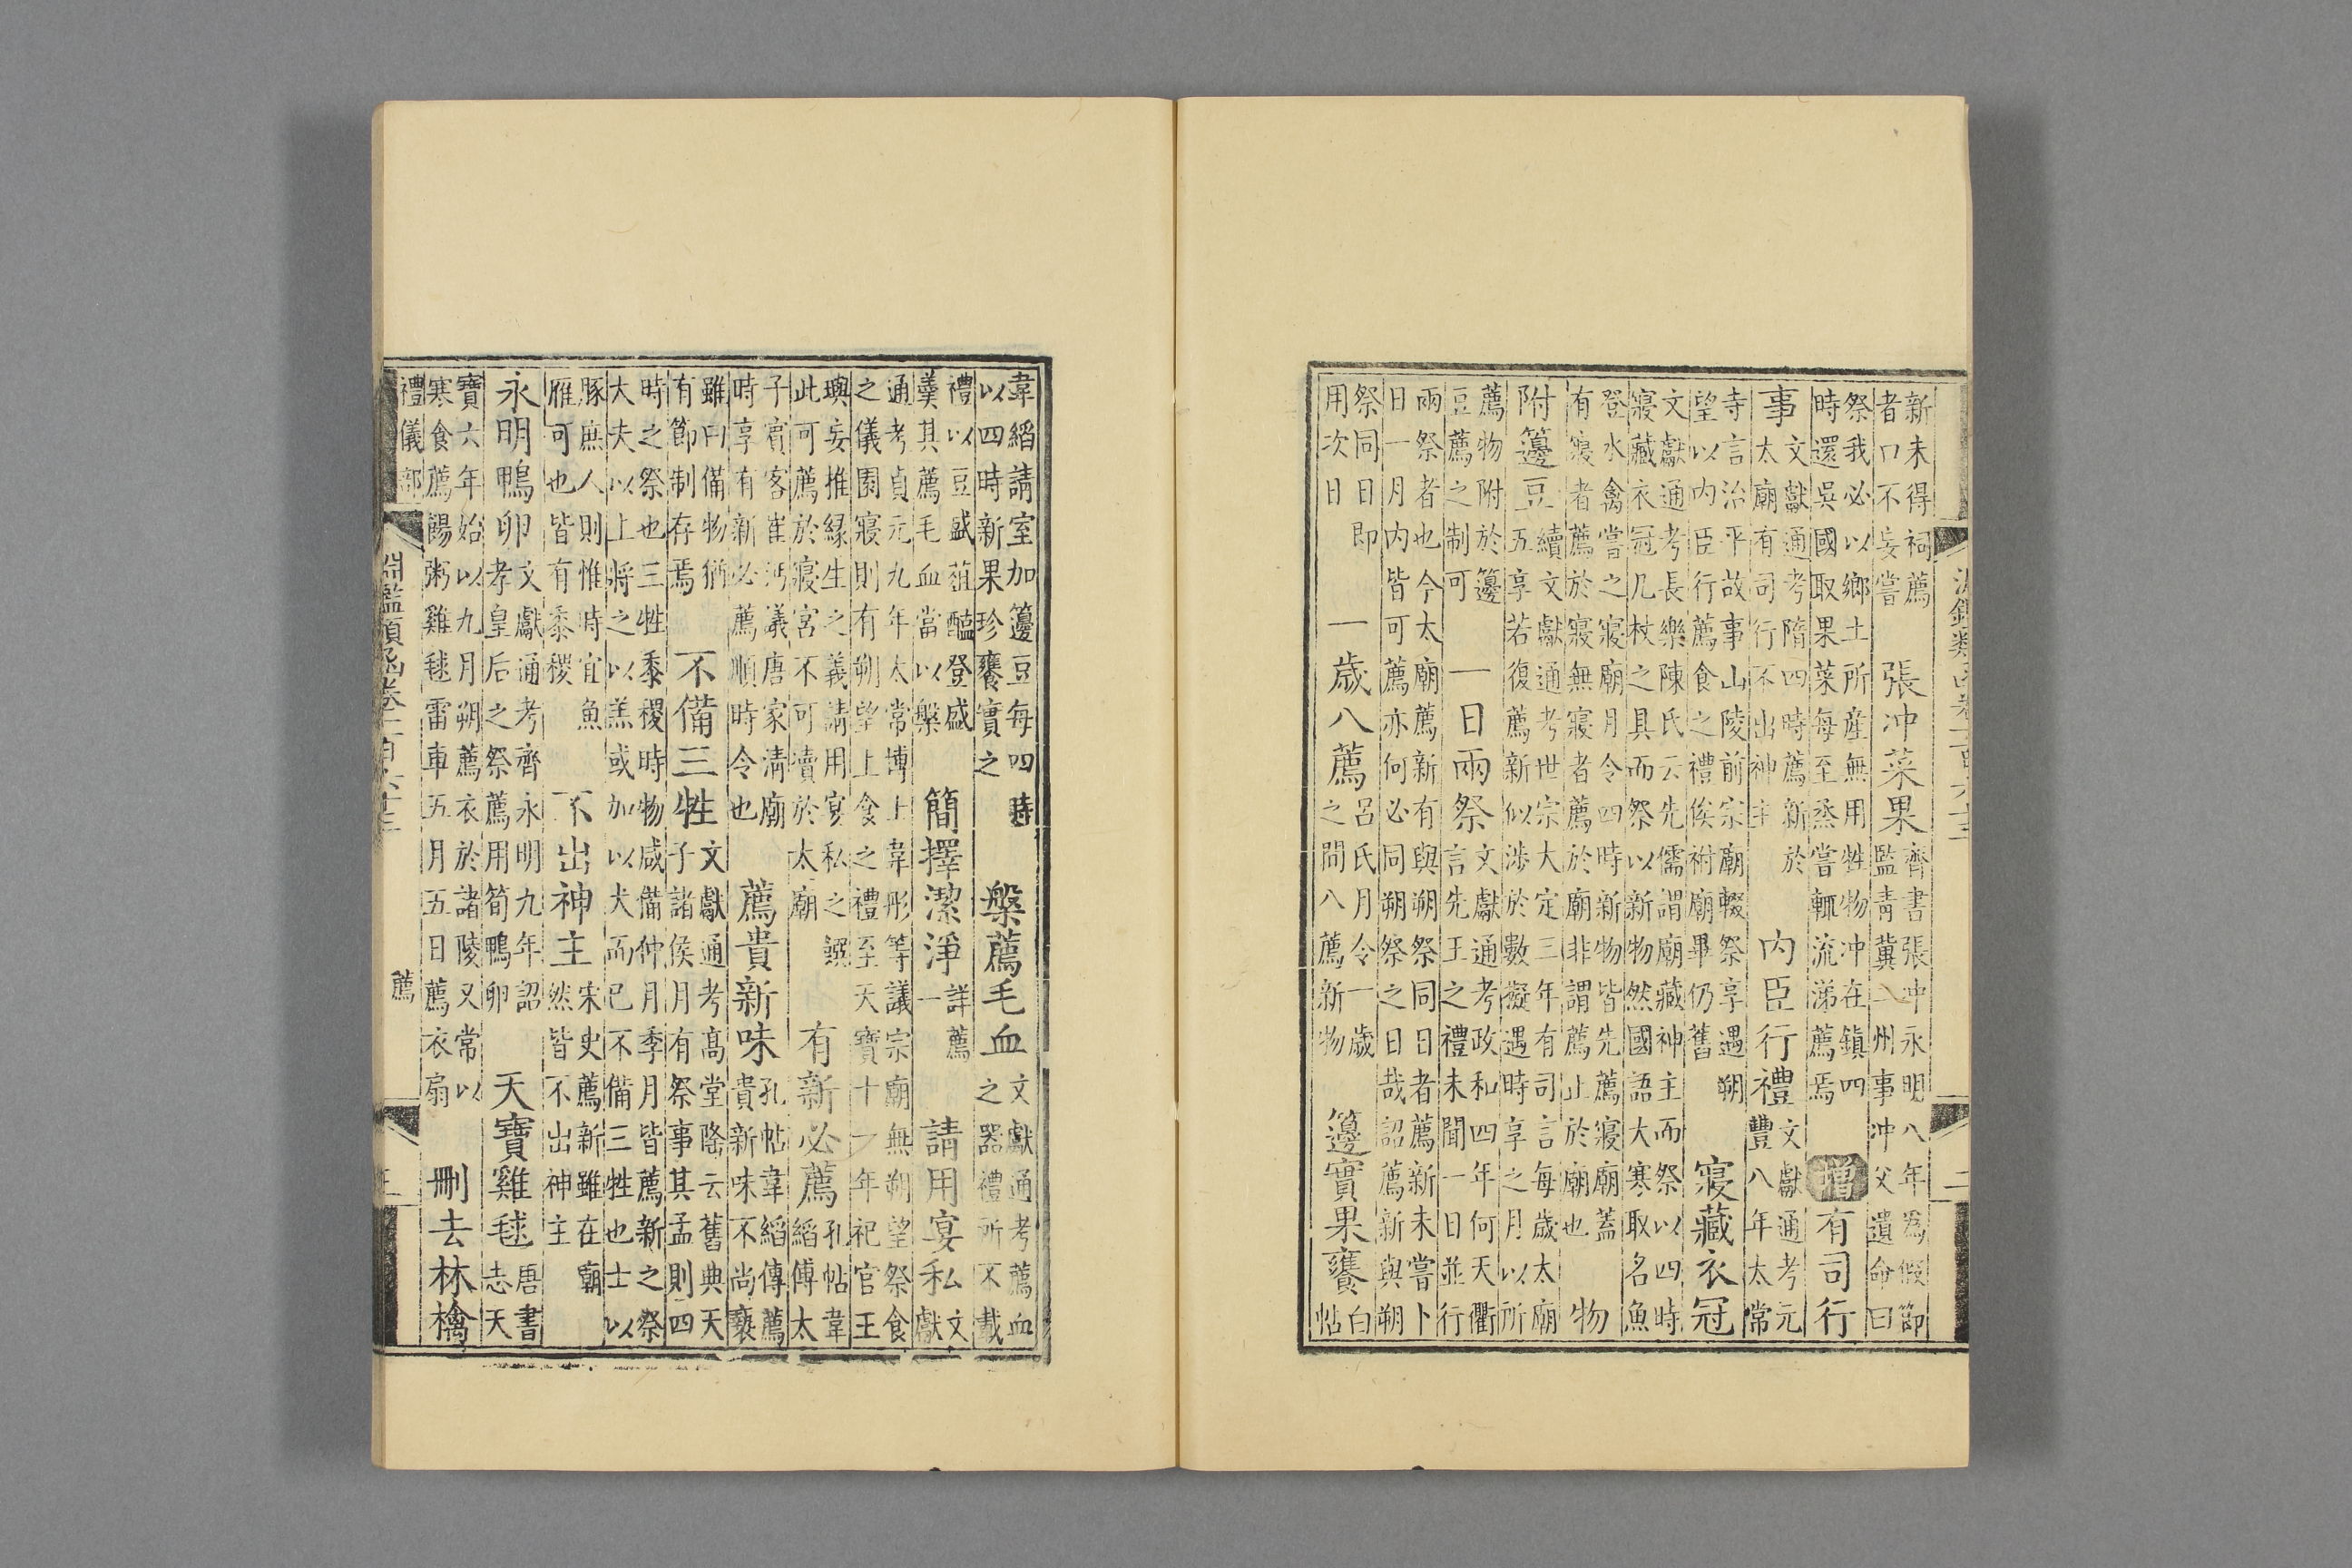 新未得祠薦
者口不妄嘗
張冲菜果
齊書張冲永明八年為假節
監青冀二州事冲父遺命曰
祭我必以鄉土所產無用牲物冲在鎮四
時還吳國取果菜每至烝嘗輒流涕薦焉
增
有司行
事
文獻通考隋四時薦新於
太廟有司行不出神主
内臣行禮
文獻通考元
豐八年太常
寺言治平故事山陵前宗廟輟祭享遇朔
望以内臣行薦食之禮俟祔廟畢仍舊
寢藏衣冠
文獻通考長樂陳氏云先儒謂廟藏神主而祭以四時
寢藏衣冠几杖之具而祭以新物然國語大寒取名魚
登水禽嘗之寢廟月令四時新物皆先薦寢廟蓋
有寢者薦於寢無寢者薦於廟非謂薦止於廟也
物
附籩豆
續文獻通考世宗大定三年有司言每歲太廟
五享若復薦新似涉於數擬遇時享之月以所
薦物附於籩
豆薦之制可
一日兩祭
文獻通考政和四年何天衢
言先王之禮未聞一日並行
兩祭者也今太廟薦新有與朔祭同日者薦新未嘗卜
日一月内皆可薦亦何必同朔祭之日哉詔薦新與朔
祭同日即
用次日
一歲八薦
呂氏月令一歲
之間八薦新物
籩實果饔
白
帖
韋縚請室加籩豆每四時
以四時新果珍饔實之
槃薦毛血
文獻通考薦血
之器禮所不載
禮以豆盛葅醢登盛
羹其薦毛血當以槃
簡擇潔淨
詳薦
一
請用宴私
文
獻
通考貞元九年太常博士韋彤等議宗廟無朔望祭食
之儀園寢則有朔望上食之禮至天寶十一年祀官王
璵妄推緣生之義請用宴私之饌
此可薦於寢宫不可瀆於太廟
有新必薦
孔帖韋
縚傅太
子賓客崔沔議唐家清廟
時享有新必薦順時令也
薦貴新味
孔帖韋縚傳薦
貴新味不尚褻
雖曰備物猶
有節制存焉
不備三牲
文獻通考高堂隆云舊典天
子諸侯月有祭事其孟則四
時之祭也三牲黍稷時物咸備仲月季月皆薦新之祭
大夫以上將之以羔或加以犬而已不備三牲也士以
豚庶人則惟時宜魚
雁可也皆有黍稷
不出神主
宋史薦新雖在廟
然皆不出神主
永明鴨卵
文獻通考齊永明九年詔
孝皇后之祭薦用筍鴨卵
天寶雞毬
唐書
志天
寶六年始以九月朔薦衣於諸陵又常以
寒食薦餳粥雞毬雷車五月五日薦衣扇
刪去林檎
淵鑑類函卷
禮儀部
薦